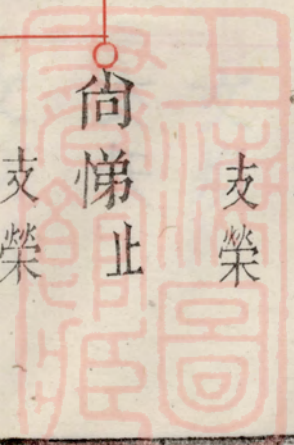 支榮
尙悌止
支榮